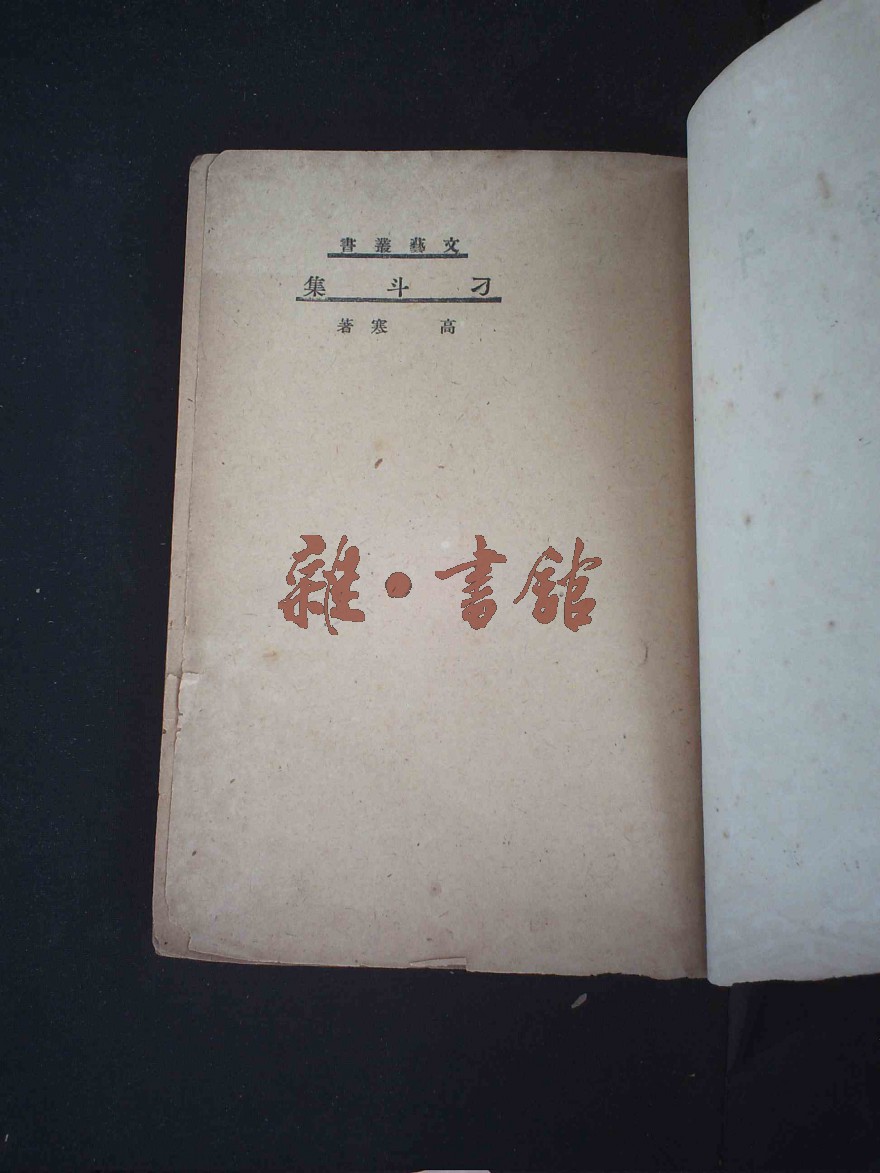 文藝叢書
刁斗集
高寒著
雜·書館